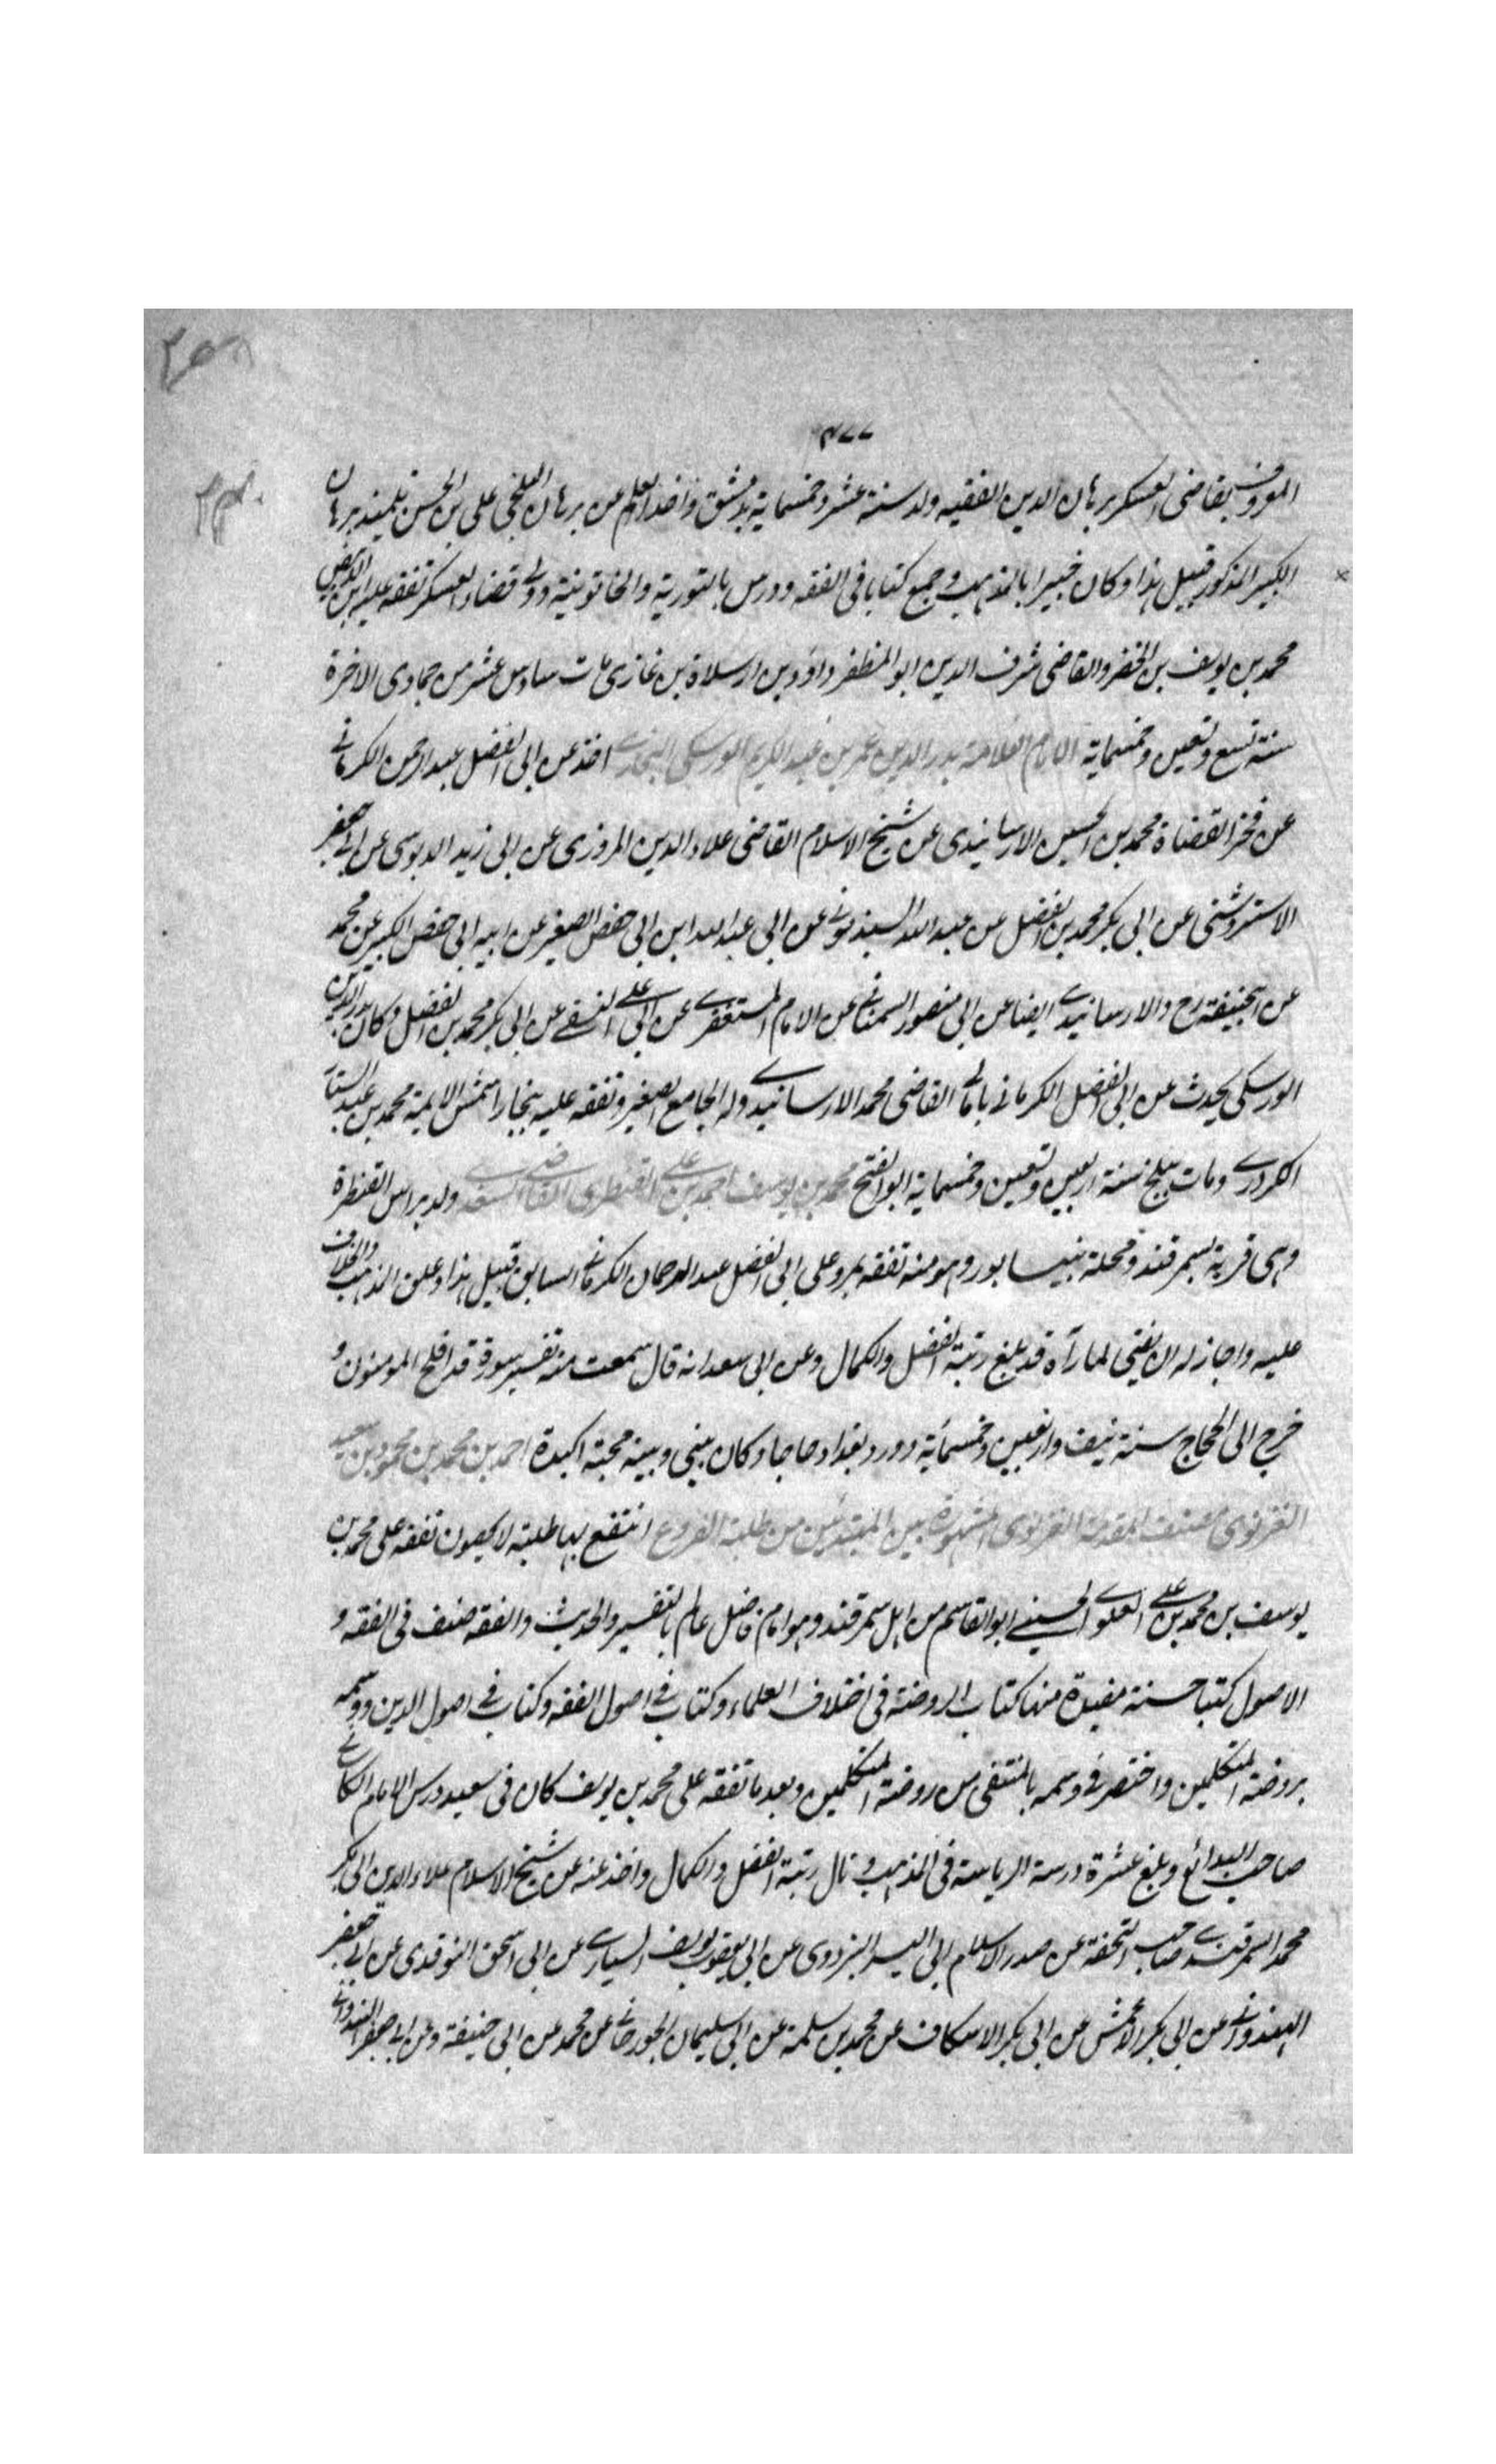 ٤٧٧
المعروف بقاضى العسكر برهان الدين الفقيه ولد سنة عشر وخمسماية بدمشق واخذ العلم عن برهان البلخى على بن الحسن تلميذ برهان
الكبير المذكور قبيل هذا وكان خبيرا بالمذهب وجمع كتابا فى الفقه ودرس بالنورية والخاتونية وولے قضاء العسكر تفقه عليه ابن
محمد بن يوسف بن الخضر والقاضى شرف الدين ابو المظفر داؤد بن ارسلان بن غازى مات سادس عشر من جمادى الاخرة
سنة تسع وتسعين وخمسماية الامام العلامة بدر الدين عمر بن عبد الكريم الورسكى البخارے اخذ عن ابى الفضل عبد الرحمن الكرمانے
عن فخر القضاة محمد بن الحسين الارسابندى عن شيخ الاسلام القاضى علاء الدين المروزى عن ابى زيد الدبوسى عن ابے جعفر
الاستروشنى عن ابى بكر محمد بن الفضل عن عبد الله السبذمونے عن ابى عبد الله ابن ابى حفص الصغير عن ابيه ابى حفص الكبير عن محمد
عن ابيحنيفة رح والارسابندے ايضا عن ابى منصور السمعانے عن الامام المستغفرے عن ابى علے النسفے عن ابى بكر محمد بن الفضل وكان بدر الدين
الورسكى يحدث عن ابى الفضل الكرمانے بامالے القاضى محمد الارسابندے وله الجامع الصغير وتفقه عليه ببخارا شمس الايمة محمد بن عبد الستار
الكردرے ومات ببلخ سنة اربعين وتسعين وخمسماية ابو الفتح محمد بن يوسف احمد بن علے القنطرى القاضى السغدے ولد براس القنطرة
وهى قرية بسمرقند ومحلة بنيسابور وهو منه تفقه بمرو على ابى الفضل عبد الرحمان الكرمانے السابق قبيل هذا وعلق المذهب والخلاف
عليه واجاز له ان يفتى لما رآه قد بلغ رتبة الفضل والكمال وعن ابى سعد انه قال سمعت منه تفسير سورة قد افلح المومنون و
خرج الى الحجاج سنة نيف واربعين وخمسمائة وورد بغداد حاجا وكان بينى وبينه محبة اكيدة احمد بن محمد بن محمود بن سعيد
الغزنوى مصنف المقدمة الغزنوى المشهورة بين المبتدئين من طلبة الفروع انتفع بها طلبة لا يحصون تفقه على محمد بن
يوسف بن محمد بن علے العلوے الحسينے ابو القاسم من اهل سمرقند وهو امام فاضل عالم بالتفسير والحديث والفقه صنف فى الفقه و
الاصول كتبا حسنة مفيدة منها كتاب الروضة فى اختلاف العلماء وكتاب فے اصول الفقه وكتاب فے اصول الدين ووسمه
بروضة المتكلمين واختصر فے وسمه بالمنتقى من روضة المتكلمين وبعد ما تفقه على محمد بن يوسف كان فى سعيد درس الامام الكاسانے
صاحب البدائع وبلغ عشرة درسة الرياسة فى المذهب ونال رتبة الفضل والكمال واخذ عنه عن شيخ الاسلام علاء الدين ابى بكر
محمد السمرقندے صاحب التحفة عن صدر الاسلام ابى اليسر البزدوى عن ابى يعقوب يوسف السيارے عن ابى اسحق النوقدى عن ابے جعفر
الهندوانے عن ابى بكر الاعمش عن ابى بكر الاسكاف عن محمد بن سلمة عن ابى سليمان الجوزجانے عن محمد عن ابى حنيفة وعن ابے جعفر الهندوانے